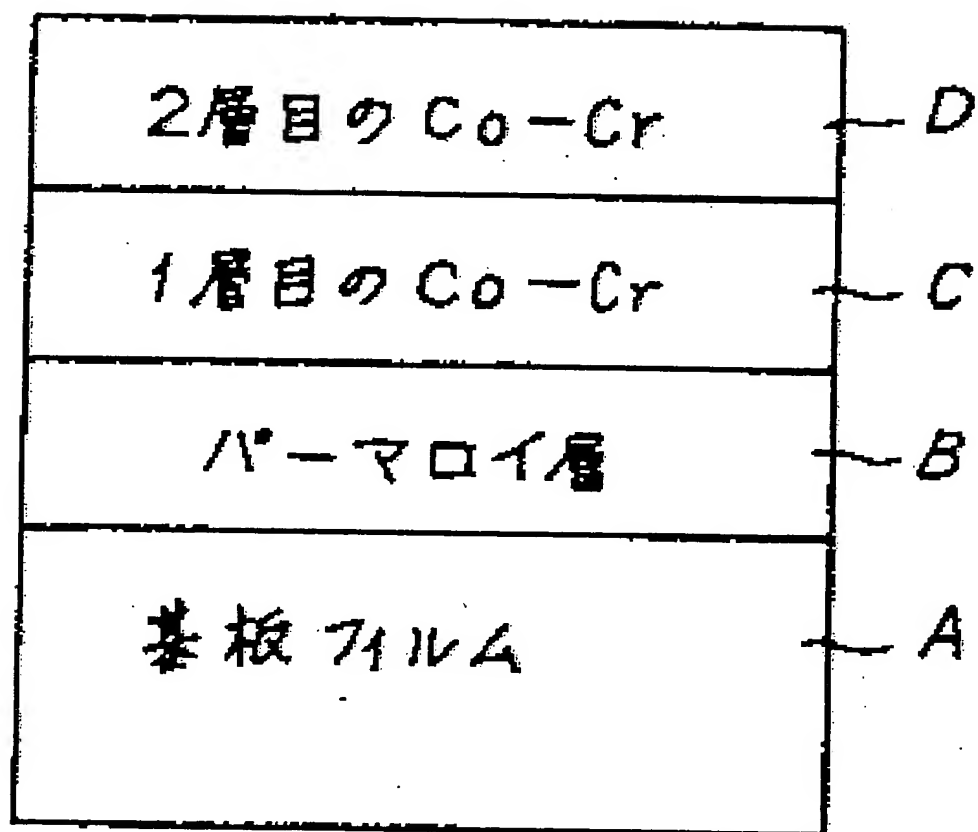 2層目のCo-Cr D
1層目のCo-Cr C
パーマロイ層 B
基板フィルム A